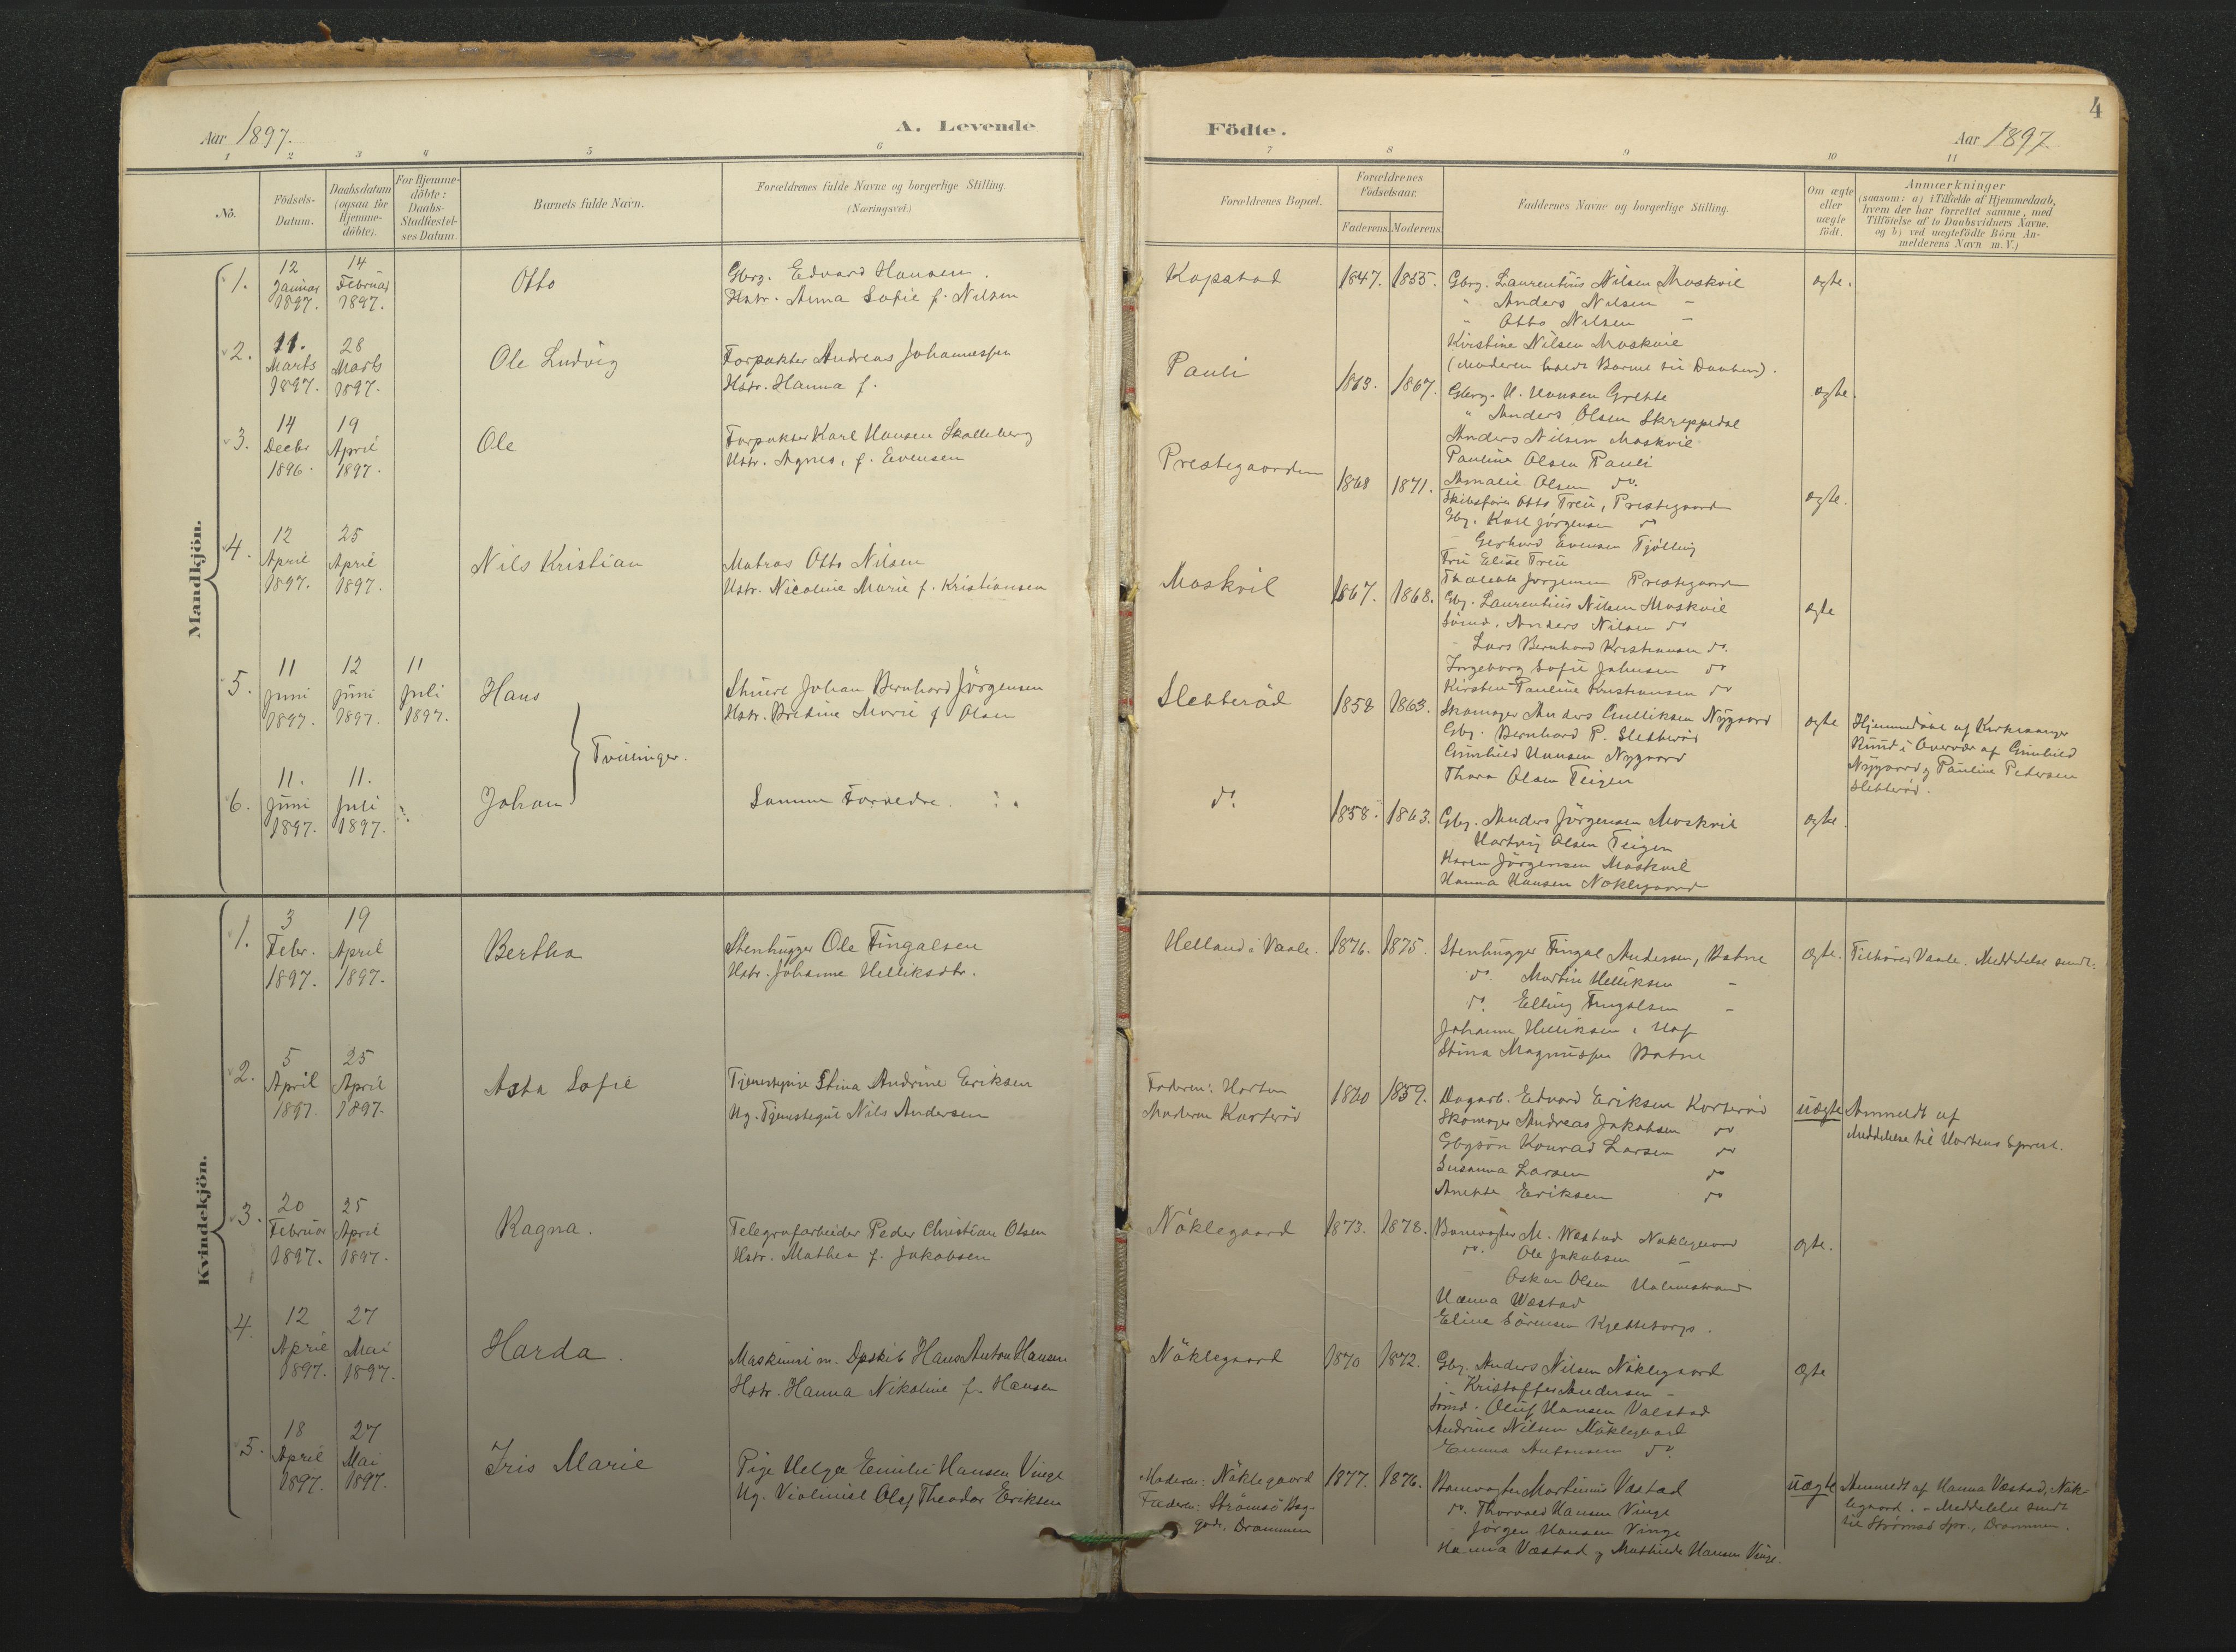 4
Aar 1897.
A. Levende Födte.
Aar 1897
1 2 3 4 5 6 7 8 9 10 11
No.
Födsels-Datum.
Daabsdatum (ogsaa for Hjemme-döbte).
For Hjemme-döbte: Daabs-Stadfæstel-ses Datum.
Barnets fulde Navn.
Forældrenes fulde Navne og borgerlige Stilling.
(Næringsvei.)
Forældrenes Bopæl.
Forældrenes Födselsaar.
Faderens. Moderens.
Faddernes Navne og borgerlige Stilling.
Om ægte eller uægte födt.
Anmærkninger
(saasom: a) i Tilfælde af Hjemmedaab,
hvem der har forrettet samme, med
Tilföielse af to Daabsvidners Navne,
og b) ved uægtefödte Börn An-
melderens Navn m. V.)
Mandkjön.
1. 12 Januar 1897. 14 Februar 1897. Otto
Gbrg. Edvard Hansen.
Hstr. Anna Sofie f. Nilsen
Kopstad 1847. 1855.
Gbrg. Laurentius Nilsen Moskvil
" Anders Nilsen -
" Otto Nilsen -
Kirstine Nilsen Moskvil
(Moderen holdt Barnet til Daaben).
ægte.
2. 11. Marts 1897. 28 Marts 1897. Ole Ludvig
Forpakter Andreas Johannessen
Hstr. Hanna f.
Pauli 1863. 1867.
Gbrg. H. Hansen Grette
" Anders Olsen Skreppedal
Anders Nilsen Moskvil
Pauline Olsen Pauli
Amalie Olsen do.
ægte.
3. 14 Decbr 1896. 19 April 1897. Ole
Forpakter Karl Hansen Skalleberg
Hstr. Agnes, f. Evensen
Prestegaarden 1868 1871.
Skibsfører Otto Treu, Prestegaard
Gbg. Karl Jörgensen do
- Gerhard Evensen Tjölling
Fru Elise Treu
Jørgensen Prestegaarden
ægte.
4. 12 April 1897. 25 April 1897. Nils Kristian
Matros Otto Nilsen
Hstr. Nicoline Marie f. Kristiansen
Moskvil 1867. 1868.
Gbg. Laurentius Nilsen Moskvil
Sömd. Anders Nilsen do
- Lars Bernhard Kristiansen do.
Ingeborg Sofie Johnsen do
Kirsten Pauline Kristiansen do
ægte
5. 11 Juni 1897. 12 Juni 1897. 11 Juli 1897. Hans
Johan Bernhard Jörgensen
Hstr. Bredine Marie f Olsen
Sletteröd 1858 1863.
Skomager Anders Gulliksen Nygaard
Gbg. Bernhard P. Sletteröd
Gunhild Hansen Nygaard
Thora Olsen Teigen
ægte
Hjemmedöbt af Kirkesanger
Ruud i Overvær af Gunhild
Nygaard og Pauline Pedersen
Sletteröd.
} Tvillinger.
6. 11. Juni 1897. 11. Juli 1897. Johan
Samme Forældre.
do. 1858. 1863.
Gbg. Anders Jörgensen Moskvil
Hartvig Olsen Teigen
Karen Jörgensen Moskvil
Hanna Hansen Nöklegaard
ægte.
Kvindekjön.
1. 3 Febr. 1897. 19 April 1897. Bertha
Stenhugger Ole Fingalsen
Hstr. Johanne Helliksdtr.
Helland i Vaale. 1876. 1875.
Stenhugger Fingal Andersen, Botne
do. Martin Helliksen -
do. Elling Fingalsen -
Johanne Helliksen i Hof
Stina Magnussen Botne
ægte.
Tilhörer Vaale. Meddelelse sendt.
2. 5 April 1897. 25 April 1897. Asta Sofie
Tjenestepige Stina Andrine Eriksen
Ug. Tjenestegut Nils Andersen
Faderen: Horten
Moderen Korteröd
1860 1859.
Dagarb. Edvard Eriksen Korteröd
Skomager Andreas Jakobsen do
Gbgsön Konrad Larsen do
Susanna Larsen do
Anette Eriksen do
uægte
Anmeldt af
Meddelelse til Hortens Sprest.
3. 20 Februar 1897. 25 April 1897. Ragna.
Telegrafarbeider Peder Christian Olsen
Hstr. Mathea f. Jakobsen
Nöklegaard 1873. 1878.
Banevogter M. Wæstad Nöklegaard
do. Ole Jakobsen -
Oskar Olsen Holmestrand
Hanna Wæstad
Eline Sörensen
ægte.
4. 12 April 1897. 27 Mai 1897. Harda.
Maskinist m. Dpskib Hans Anton Hansen
Hstr. Hanna Nikoline f. Hansen
Nöklegaard 1870 1872.
Gbg. Anders Nilsen Nöklegaard
" Kristoffer Andersen -
Sömd. Oluf Hansen Valstad
Andrine Nilsen Nöklegaard
Emma Antonsen do
Ægte
5. 18 April 1897. 27 Mai 1897. Iris Marie
Pige Helga Emilie Hansen Vinge
Ug. Violinist Olaf Theodor Eriksen
Moderen: Nöklegaard
Faderen: Strömsö Bag-
gade, Drammen
1877. 1876.
Banevogter Martinius Væstad
do. Thorvald Hansen Vinge
- Jörgen Hansen Vinge
Hanna Væstad og Mathilde Hansen Vinge.
uægte
Anmeldt af Hanna Væstad, Nök-
legaard. - Meddelelse sendt
til Strömsö Spr., Drammen.